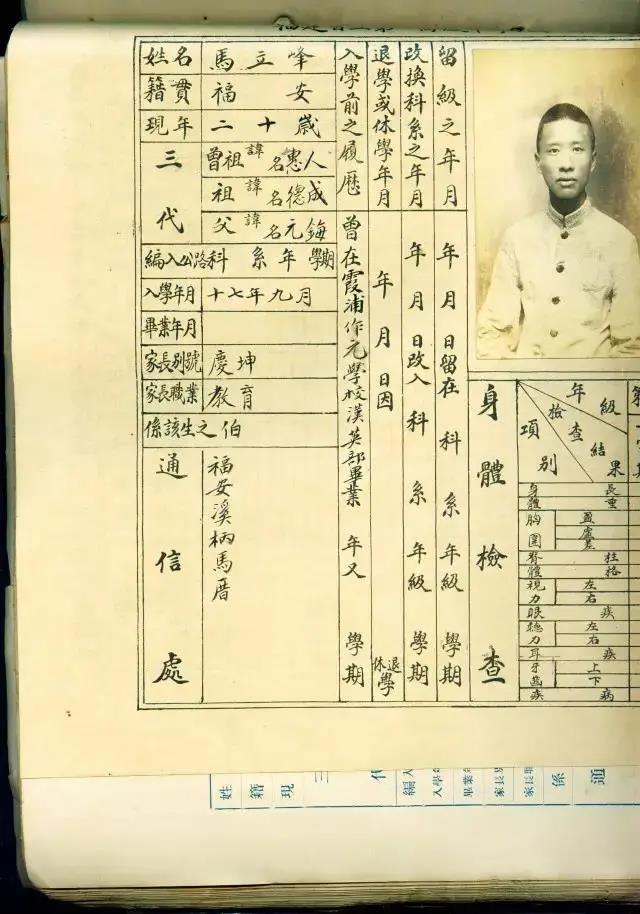 姓名 馬立峰
籍貫 福安
現年 二十歲
三代
曾祖諱名惠人
祖諱名德成
父諱名元鋂
編入公路科 系 年 學期
入學年月 十七年九月
畢業年月
家長別號 慶坤
家長職業 教育
係該生之伯
通信處
福安溪柄馬厝
入學前之履歷
曾在霞浦作元學校漢英部畢業 年又 學期
退學或休學年月
年 月 日因 休退學
改換科系之年月
年 月 日改入 科 系 年級 學期
留級之年月
年 月 日留在 科 系 年級 學期
身體檢查
年級
檢查結果
項別
身長
體重
胸圍 盈
虛
差
脊柱
體格
視力 左
右
眼疾
聽力 左
右
耳疾
牙齒 上
下
疾病
第
學
期
姓
籍
現
三
代
編入
入學
畢業
家長別
家長職
係
通